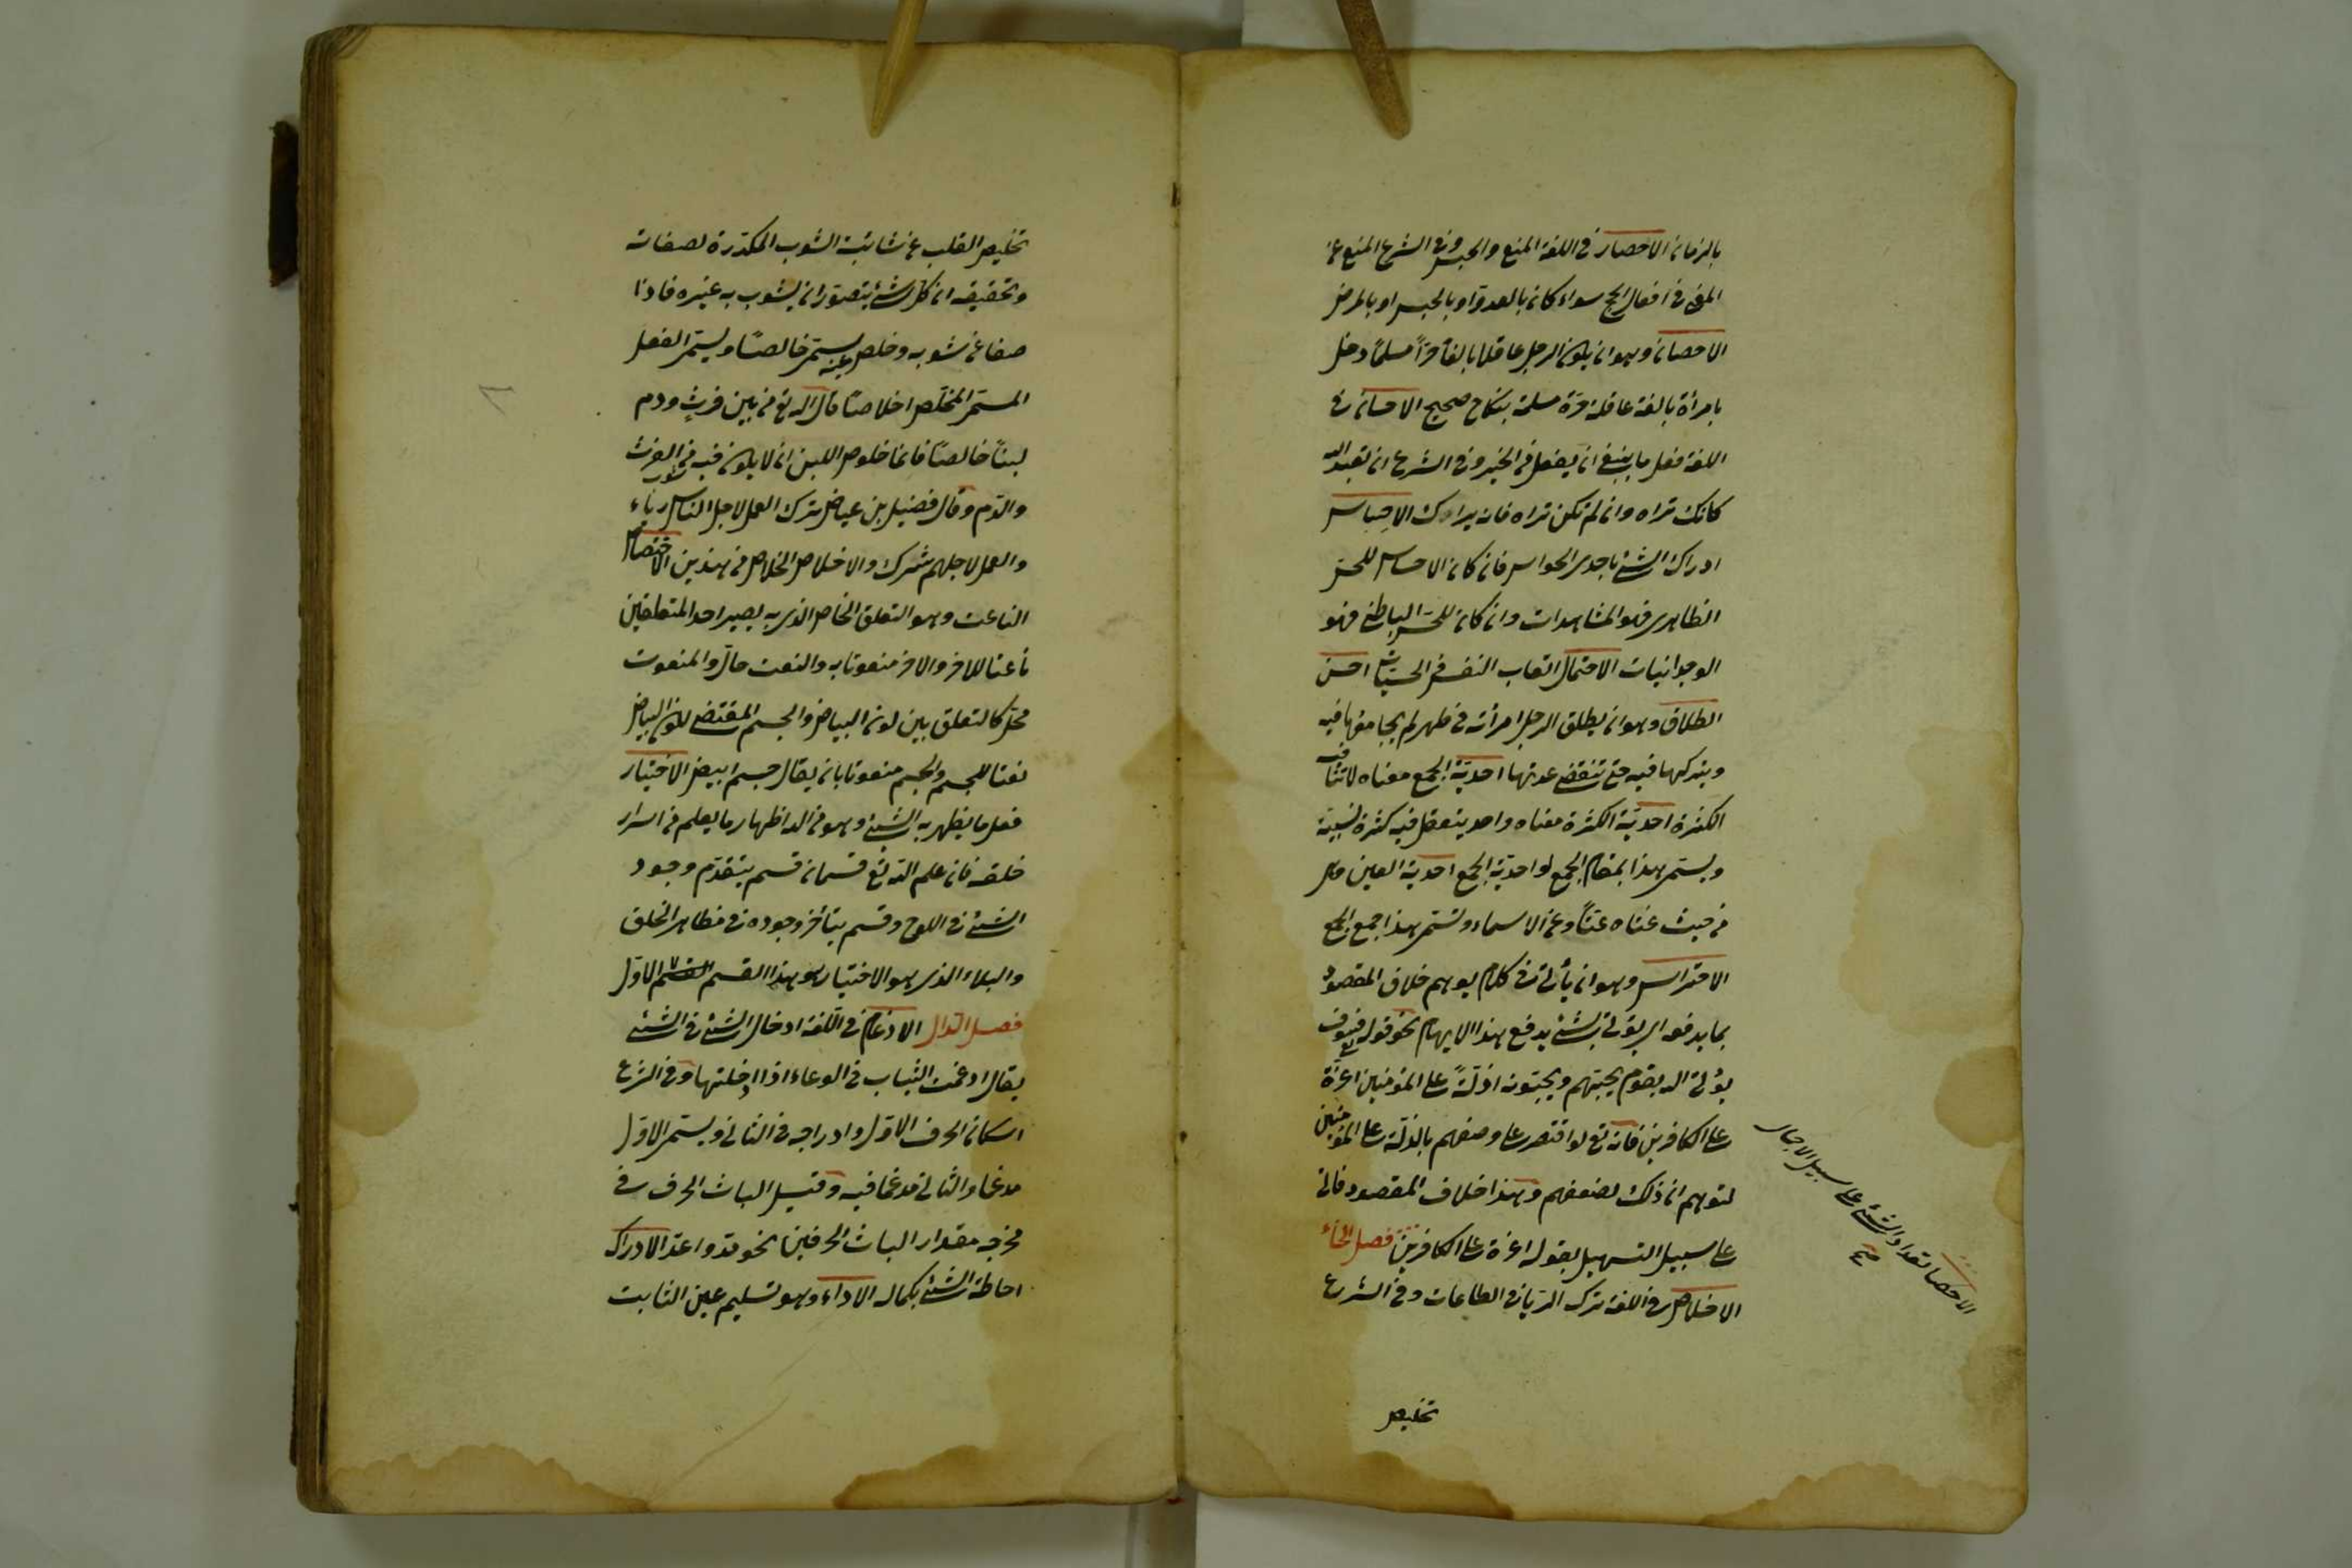 بالزمان الاحصار في اللغة المنع والحبس وفي الشرع المنع عن
المضي في افعال الحج سواء كان بالعدوّ او بالحبس او بالمرض
الاحصان وهو ان يكون الرجل عاقلا بالغا حرّاً مسلماً دخل
بامرأة بالغة عاقلة حرّة مسلمة بنكاح صحيح الاحسان في
اللغة فعل ما ينبغي ان يفعل من الخير وفي الشرع ان تعبد الله
كانك تراه وان لم تكن تراه فانه يراك الاحساس
ادراك الشئ باحدى الحواس فان كان الاحساس للحسّ
الظاهري فهو المشاهدات وان كان للحسّ الباطن فهو
الوجدانيات الاحتمال اتعاب النفس في الحسيات احسن
الطلاق وهو ان يطلق الرجل امرأته في طهر لم يجامعها فيه
ويتركها فيه حتى تنقضي عدتها احديّة الجمع معناه لا تنافيه
الكثرة احديّة الكثرة معناه واحد يتعقل فيه كثرة نسبية
ويسمى هذا بمقام الجمع واحديّة الجمع احدية العين هي
من حيث غناه عنّا وعن الاسماء وتسمى هذا جمع الجمع
الاحتراس وهو ان يأتي في كلام يوهم خلاف المقصود
بما يدفعه اي يؤتى بشئ يدفع هذا الايهام نحو قوله تع فسوف
يؤتى الله بقوم يحبهم ويحبّونه اذلّةً على المؤمنين اعزّة
على الكافرين فانه تع لو اقتصر على وصفهم بالذلّة على المؤمنين
لتوهم ان ذلك لضعفهم وهذا خلاف المقصود فاتى
على سبيل التسهيل بقوله اعزة على الكافرين فصل الخاء
الاخلاص في اللغة ترك الريا في الطاعات وفي الشرع
تخليص
الاحصا تعداد الشئ على سبيل الاجمال
صح
تخليص القلب عن شائبة الشوب المكدّرة لصفائه
وتحقيقه ان كل شئ يتصوّر ان يشوب به غيره فاذا
صفا عن شوبه وخلص عنه يسمى خالصًا ويسمى الفعل
المسمى المخلّص اخلاصًا قال الله تع من بين فرثٍ ودم
لبنًا خالصًا فانما خلوص اللبن ان لا يكون فيه شوب من الفرث
والدّم وقال فضيل بن عياض ترك العمل لاجل الناس رياء
والعمل لاجلهم شرك والاخلاص الخلاص من هذين الاختصاص
الناعت وهو التعلق الخاص الذي به يصير احد المتعلقين
ناعتا للاخر والاخر منعوتا به والنعت حالّ والمنعوت
محلّ كالتعلق بين لون البياض والجسم المقتضي لكون البياض
نعتا للجسم والجسم منعوتا بان يقال جسم ابيض الاختيار
فعل ما يظهر به الشئ وهو من الله اظهار ما يعلم من اسرار
خلقه فان علم الله تع قسمان قسم يتقدّم وجود
الشئ في اللوح وقسم يتأخر وجوده في مظاهر الخلق
والبلاء الذي هو الاختيار هو هذا القسم القسم الاوّل
فصل الدال الادغام في اللّغة ادخال الشئ في الشئ
يقال ادغمت الثياب في الوعاء اذا ادخلتها وفي الشرع
اسكان الحرف الاوّل وادراجه في الثاني ويسمى الاوّل
مدغما والثاني مدغما فيه وقيل الباث الحرف في
مخرجه مقدار الباث الحرفين نحو مدّ وعدّ الادراك
احاطة الشئ بكماله الاداء وهو تسليم عين الثابت